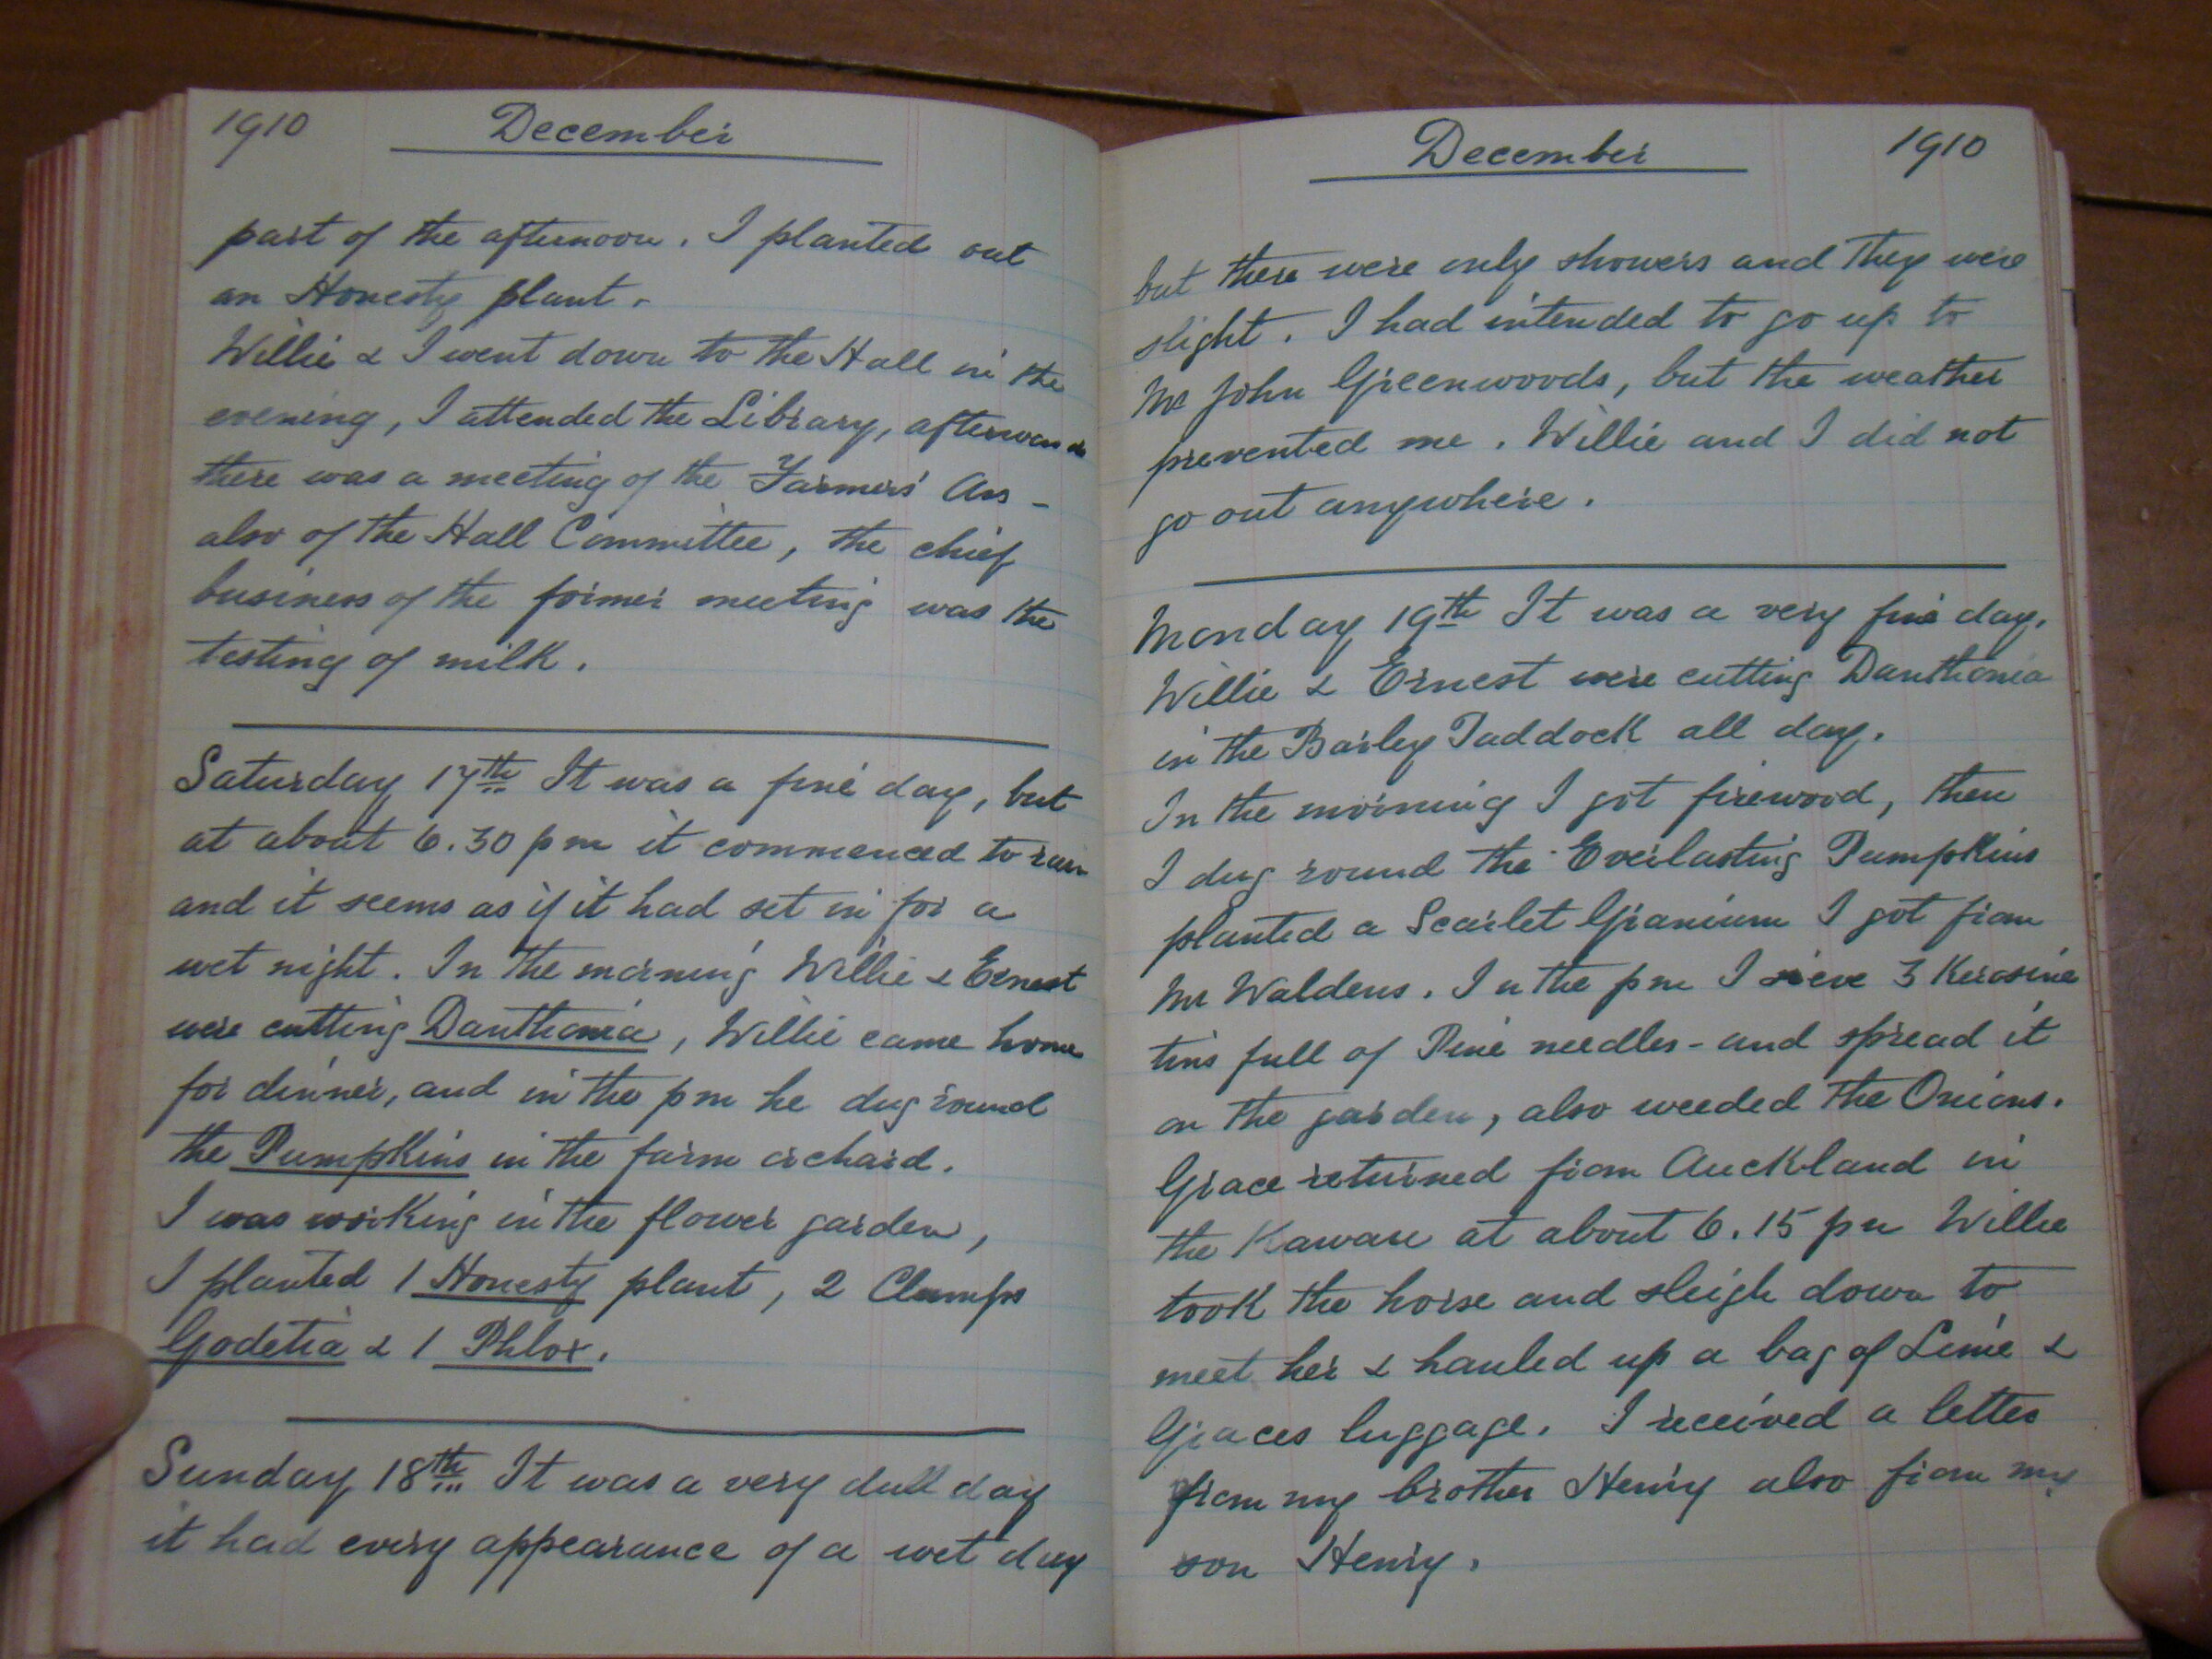 1910 December
part of the afternoon. I planted out
an Honesty plant.
Willie & I went down to the Hall in the
evening, I attended the Library, afterwards
there was a meeting of the Farmers' Ass -
also of the Hall Committee, the chief
business of the former meeting was the
testing of milk.
Saturday 17th It was a fine day, but
at about 6.30 pm it commenced to rain
and it seems as if it had set in for a
wet night. In the morning Willie & Ernest
were cutting Danthonia, Willie came home
for dinner, and in the pm he dug round
the Pumpkins in the farm orchard.
I was working in the flower garden,
I planted 1 Honesty plant, 2 Clumps
Godetia & 1 Phlox.
Sunday 18th It was a very dull day
it had every appearance of a wet day
December 1910
but there were only showers and they were
slight. I had intended to go up to
Mr John Greenwoods, but the weather
prevented me. Willie and I did not
go out anywhere.
Monday 19th It was a very fine day.
Willie & Ernest were cutting Danthonia
in the Barley Paddock all day.
In the morning I got firewood, then
I dug round the Everlasting Pumpkins
planted a Scarlet Granium I got from
Mr Waldens. In the pm I sieve 3 Kerosine
tins full of Pine needles - and spread it
on the garden, also weeded the Onions.
Grace returned from Auckland in
the Kawau at about 6.15 pm Willie
took the horse and sleigh down to
meet her & hauled up a bag of Lime &
Graces luggage. I received a letter
from my brother Henry also from my
son Henry.